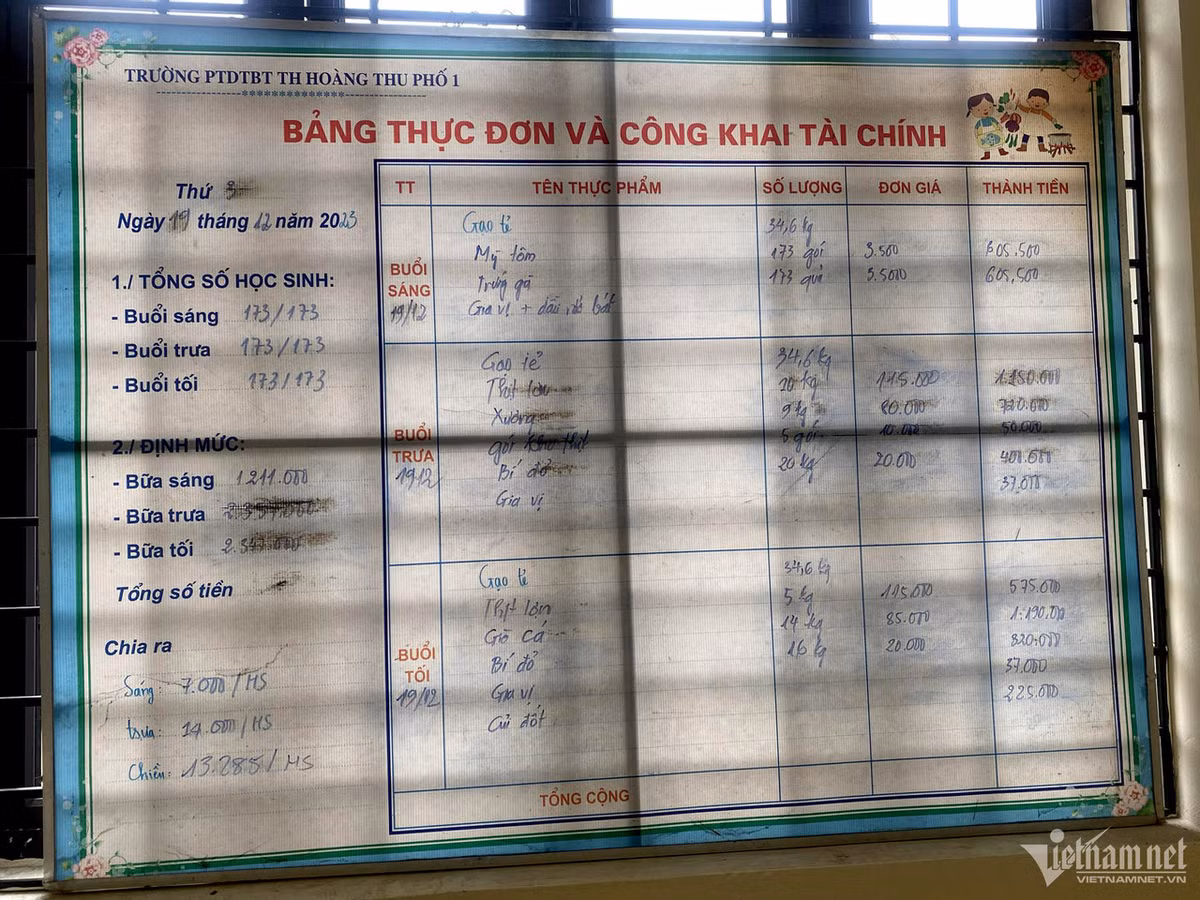 TRƯỜNG PTDTBT TH HOÀNG THU PHỐ 1
BẢNG THỰC ĐƠN VÀ CÔNG KHAI TÀI CHÍNH
Thứ 3
Ngày 19 tháng 12 năm 2023
1./ TỔNG SỐ HỌC SINH:
- Buổi sáng 173/173
- Buổi trưa 173/173
- Buổi tối 173/173
2./ ĐỊNH MỨC:
- Bữa sáng 1211.000
- Bữa trưa
- Bữa tối
Tổng số tiền
Chia ra
Sáng: 7.000/HS
trưa: 14.000/HS
Chiều: 13.285/HS
TT TÊN THỰC PHẨM SỐ LƯỢNG ĐƠN GIÁ THÀNH TIỀN
BUỔI SÁNG 19/12
Gạo tẻ 34,6 kg
Mỳ tôm 173 gói 3.500 605,500
Trứng gà 173 quả 3.5000 605,500
Gia vị + dầu
BUỔI TRƯA 19/12
Gạo tẻ 34,6 kg
Thịt lợn
Xương 9 kg 80.000 720.000
gói 5 gói 10.000 50.000
Bí đỏ 20 kg 20.000 400.000
Gia vị 37.000
BUỔI TỐI 19/12
Gạo tẻ 34,6 kg
Thịt lợn 5 kg 115.000 575.000
Giò cá 14 kg 85.000 1.190.000
Bí đỏ 16 kg 20.000 320.000
Gia vị 37.000
Củi đốt 225.000
TỔNG CỘNG
Vietnamnet
VIETNAMNET.VN